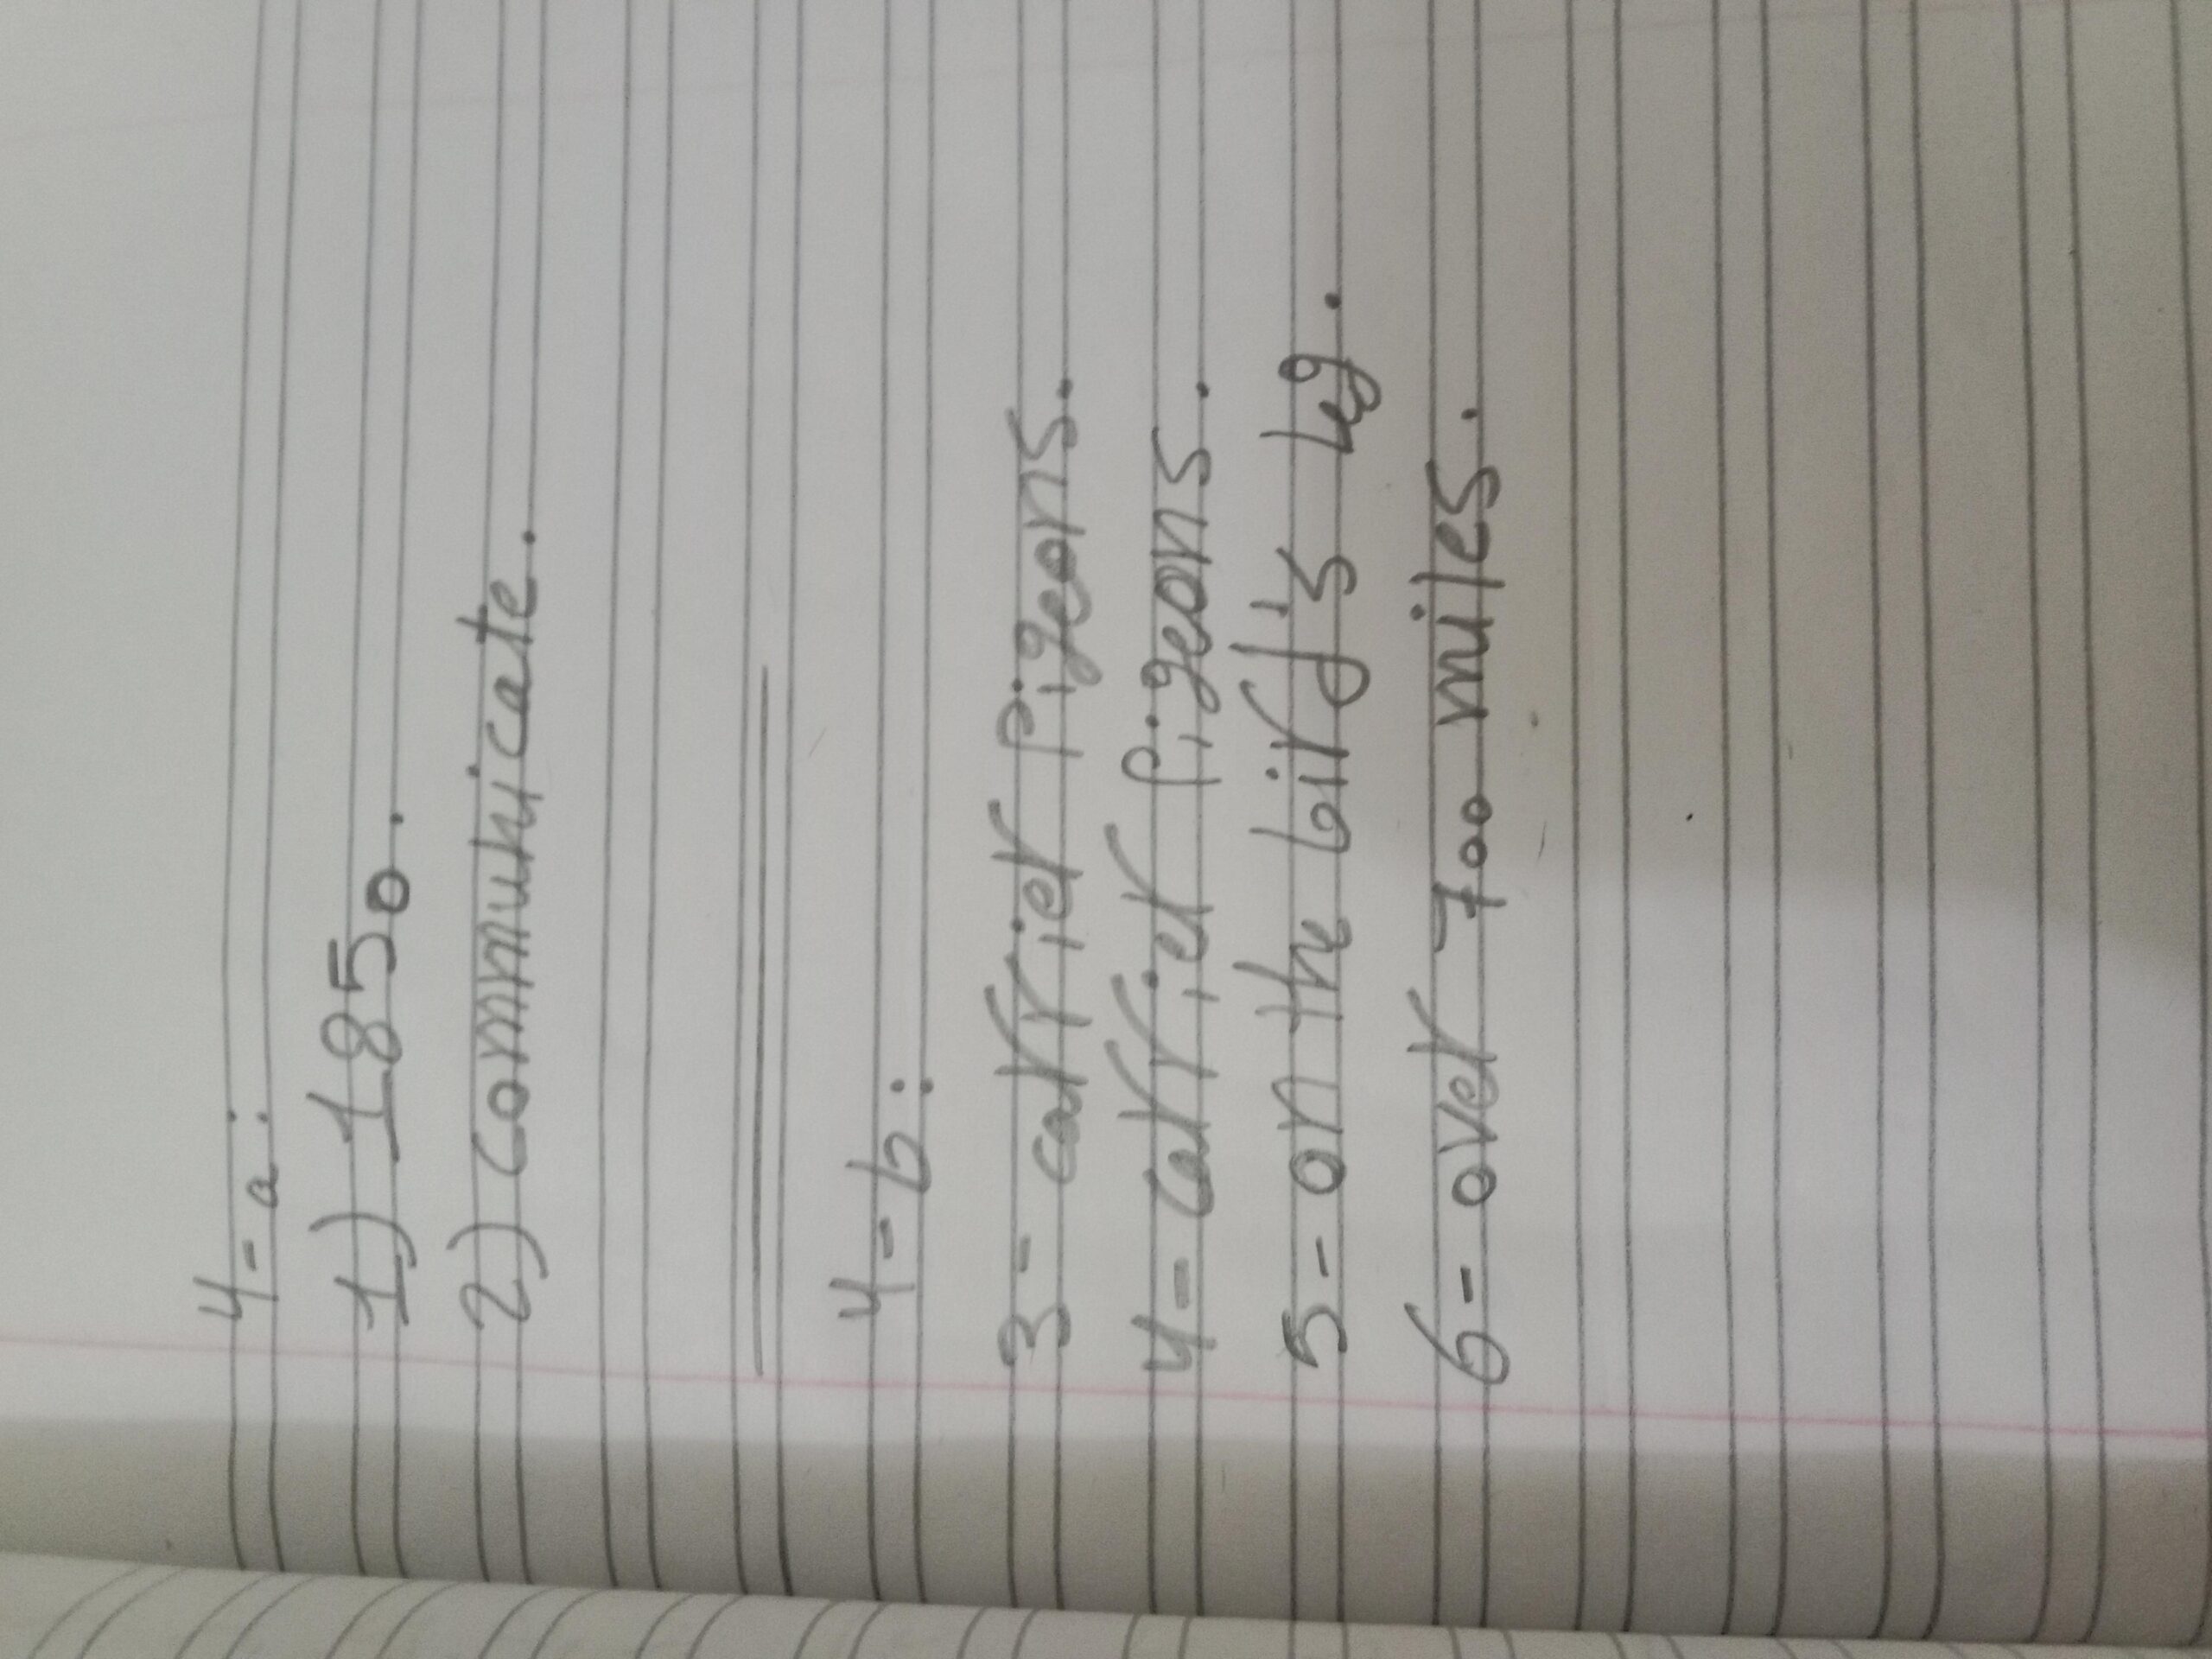 4- a:
1) 1850.
2) communicate.
4- b:
3- carrier pigeons.
4- carrier pigeons.
5- on the bird's leg.
6- over 700 miles.